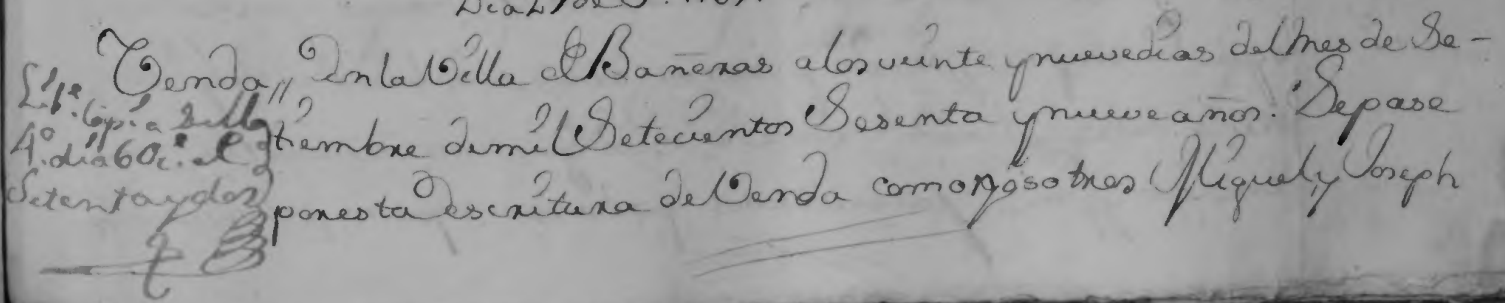 Venda // En la Villa de Bañeres a los veinte y nueve dias del Mes de Se-
tiembre de mil Setecientos Sesenta y nueve años. Sepase
por esta escritura de Venda como nosotros Miguel, y Joseph
Copia
4º. dia
Setenta y dos